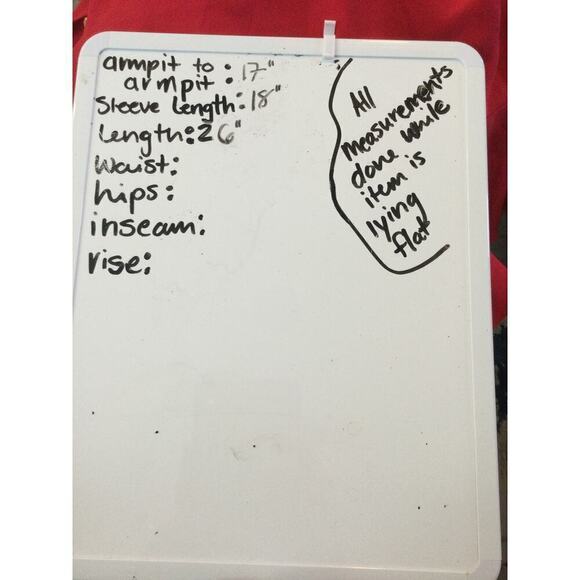 armpit to
armpit : 17"
Sleeve Length: 18"
Length: 26"
Waist:
hips:
inseam:
rise:
All
measurements
done while
item is
lying
flat